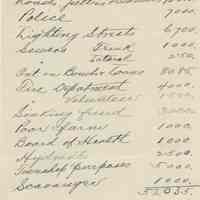 Police 7000.
Lighting Streets 6700.
Sewers Trunk 1000.
Lateral 250.
Int. on Bonds & Loans 8085.
Fire Department 4000.
" Volunteer
Sinking fund 3000.
Poor & farm 1000.
Board of Health 1000.
Hydrants 2500.
Township purposes 5000.
Scavenger 1000.
52035.